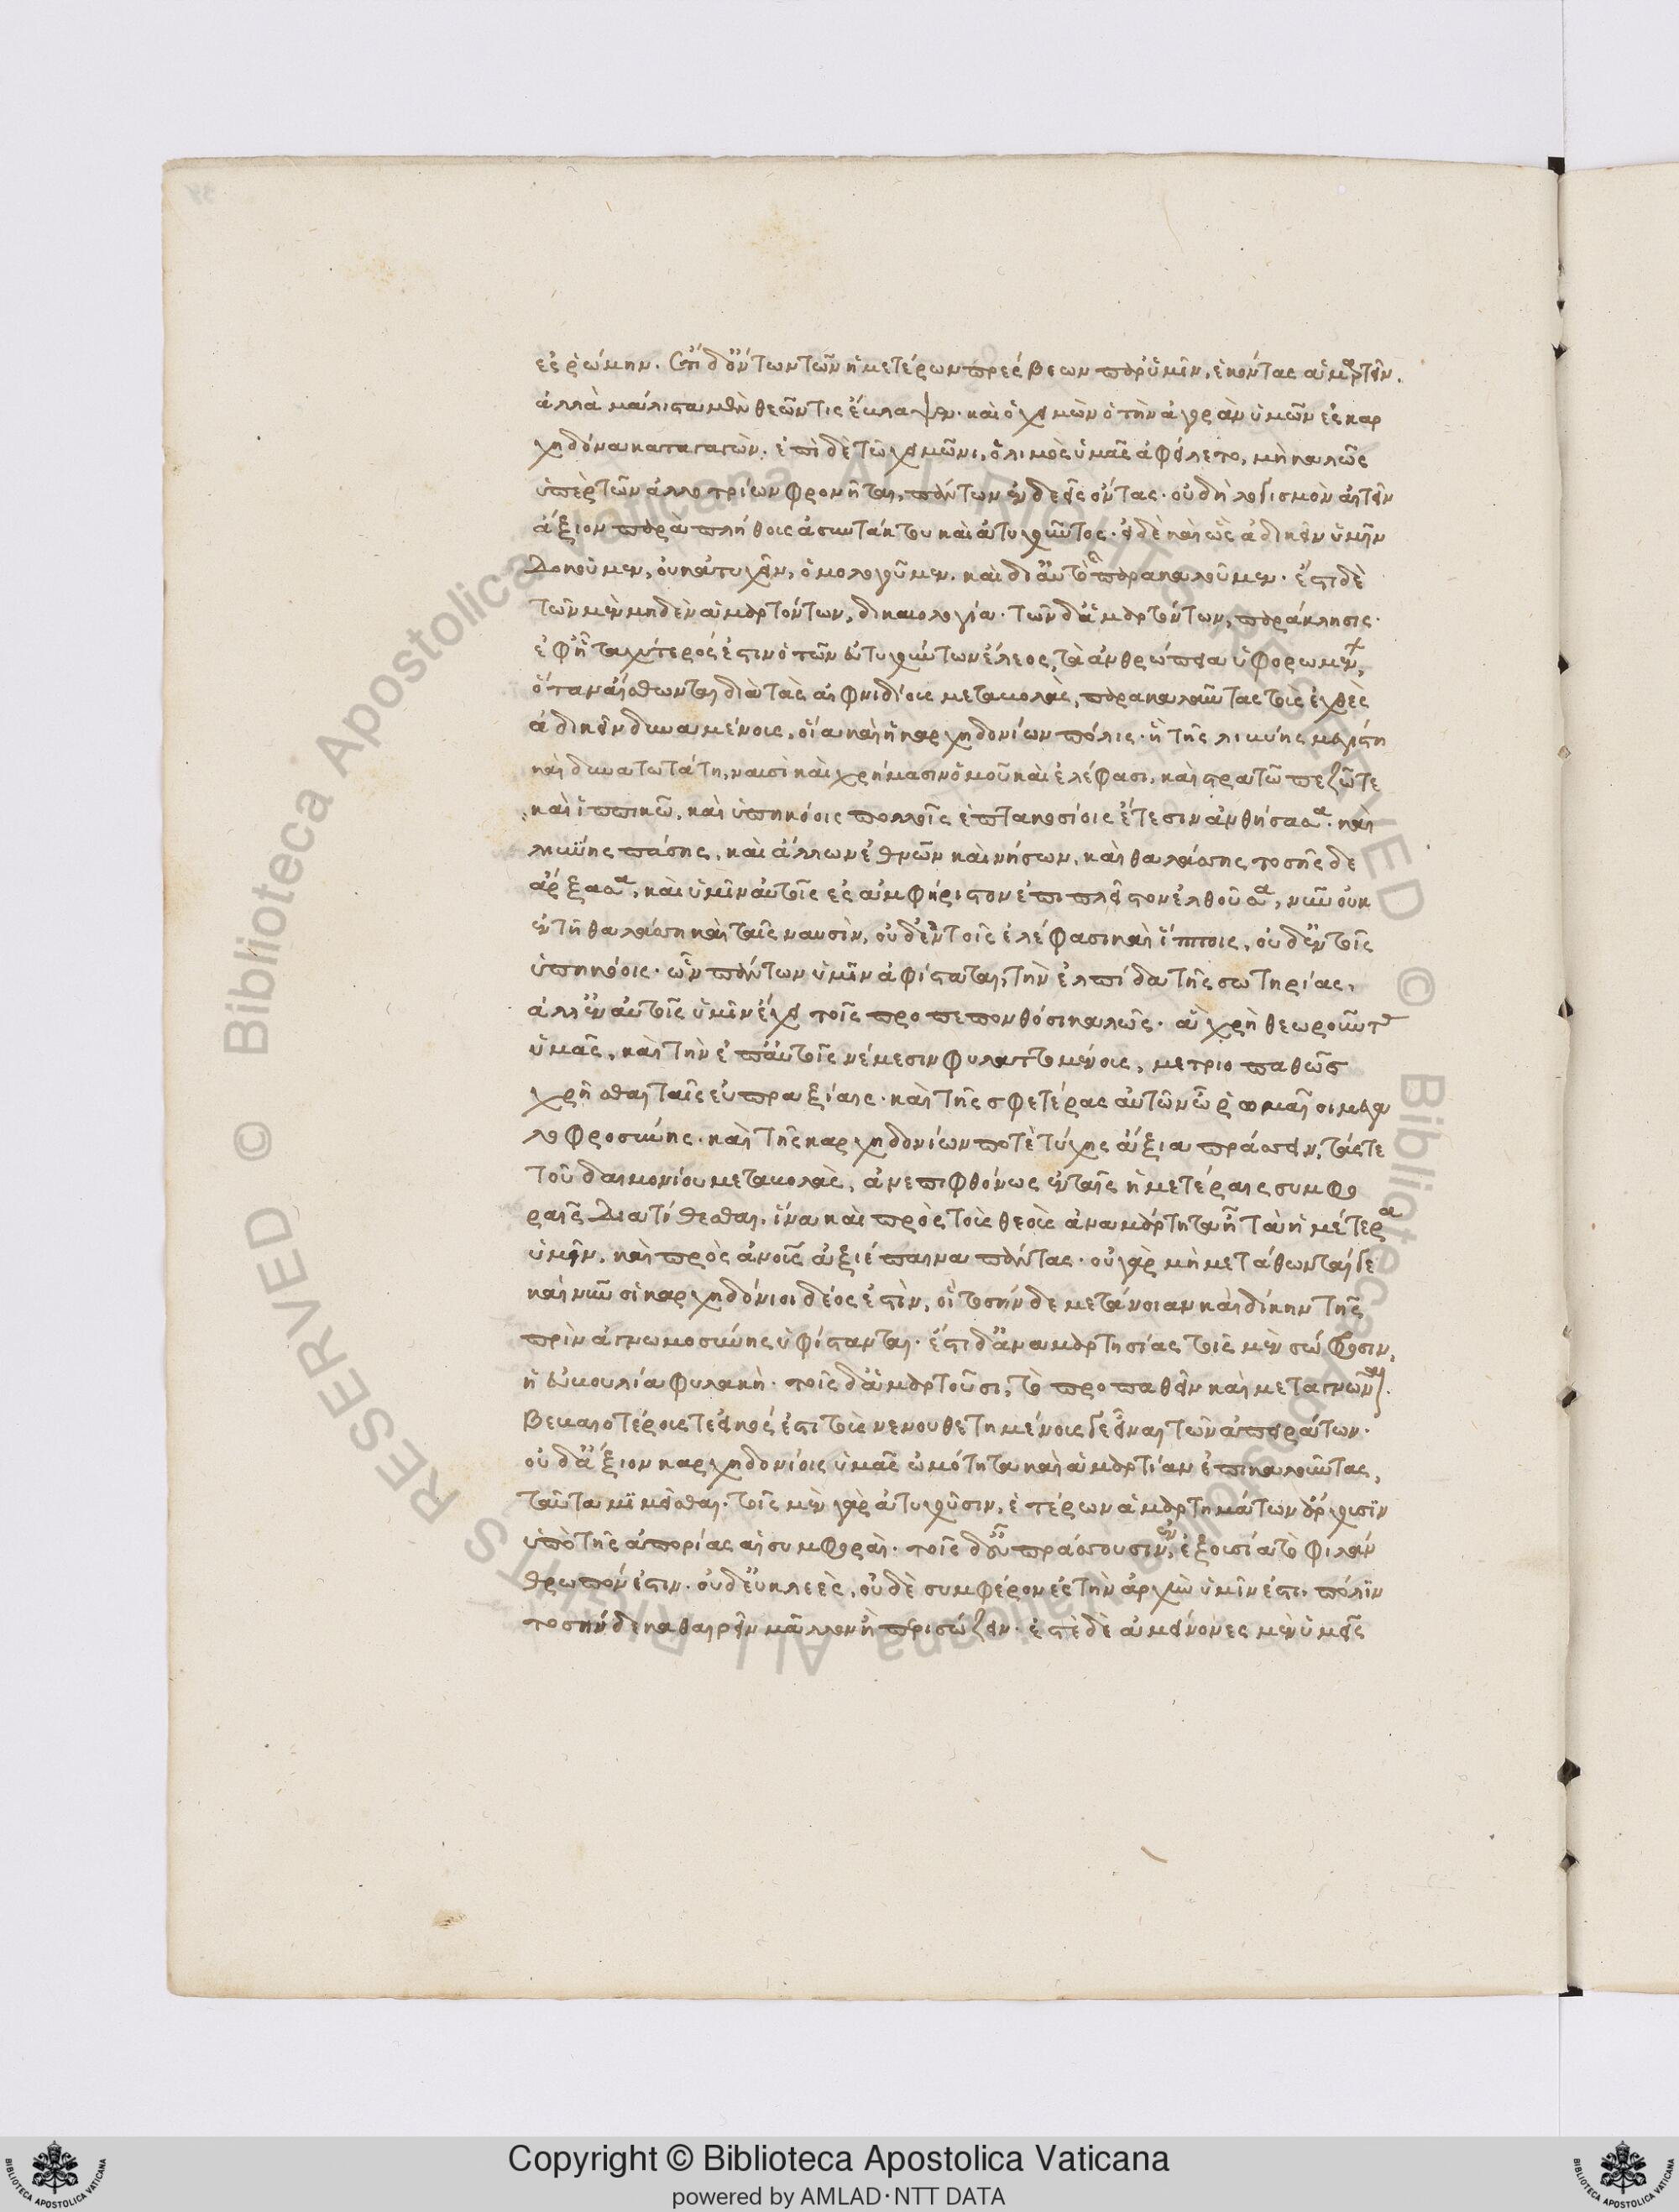 ἐς ῥώμην. ἐπιδόντων τῶν ἡμετέρων πρέσβεων παρ' ὑμῖν, ἑκόντας ἁμαρτεῖν.
ἀλλὰ μάλιστα μὲν θεῶν τις ἔβλαψεν. καὶ ὁ χειμὼν ὁ τὴν ἀγορὰν ὑμῶν ἐς καρ
χηδόνα καταγαγὼν. ἐπὶ δὲ τῶ χειμῶνι, ὁ λιμὸς ὑμᾶς ἀφείλετο, μὴ καλῶς
ὑπὲρ τῶν ἀλλοτρίων φρονῆσαι, πάντων ἐνδεεῖς ὄντας. οὐδὴ λογισμὸν αἰτεῖν
ἄξιον παρὰ πλήθους ἀσυντάκτου καὶ ἀτυχοῦντος. εἰ δὲ καὶ ὣς ἀδικεῖν ὑμῖν
δοκοῦμεν, οὐκ ἀτυχεῖν, ὁμολογοῦμεν. καὶ δι' αὐτὸ παρακαλοῦμεν. ἔστι δὲ
τῶν μὲν μηδὲν ἁμαρτόντων, δικαιολογία. τῶν δ' ἁμαρτόντων, παράκλησις.
ἐφ' ἧ ταχύτερός ἐστιν ὁ τῶν εὐτυχούντων ἔλεος, τὰ ἀνθρώπεια ὑφορωμένων,
ὅταν αἴσθωνται διὰ τὰς αἰφνιδίους μεταβολὰς, παρακαλοῦντας τοὺς ἐχθὲς
ἀδικεῖν δυναμένους. οἵα καὶ ἡ καρχηδονίων πόλις. ἡ τῆς λιβύης μεγίστη
καὶ δυνατωτάτη, ναυσὶ καὶ χρήμασιν ὁμοῦ καὶ ἐλέφασι, καὶ στρατῶ πεζῶ τε
καὶ ἱππικῶ, καὶ ὑπηκόοις πολλοῖς ἑπτακοσίοις ἔτεσιν ἀνθήσασα. καὶ
λιβύης πάσης, καὶ ἄλλων ἐθνῶν καὶ νήσων, καὶ θαλάσσης τοσῆς δε
ἄρξασα, καὶ ὑμῖν αὐτοῖς ἐς ἀμφήριστον ἐπὶ πλεῖστον ἐλθοῦσα, νῦν οὐκ
ἐν τῆ θαλάσση καὶ ταῖς ναυσὶν, οὐδ' ἐν τοῖς ἐλέφασι καὶ ἵπποις, οὐδ' ἐν τοῖς
ὑπηκόοις. ὧν πάντων ὑμῖν ἀφίσταται, τὴν ἐλπίδα τῆς σωτηρίας,
ἀλλ' ἐν αὐτοῖς ὑμῖν ἔχει τοῖς προπεπονθόσι καλῶς. ἃ χρὴ θεωροῦντας
ὑμᾶς, καὶ τὴν ἐπ' αὐτοῖς νέμεσιν φυλαττομένους, μετριοπαθῶς
χρῆσθαι ταῖς εὐπραξίαις. καὶ τῆς σφετέρας αὐτῶν ὦ ῥωμαῖοι μεγα
λοφροσύνης. καὶ τῆς καρχηδονίων ποτὲ τύχης ἄξια πράσσειν, τάς τε
τοῦ δαιμονίου μεταβολὰς, ἀνεπιφθόνως ἐν ταῖς ἡμετέραις συμφο
ραῖς διατίθεσθαι. ἵνα καὶ πρὸς τοὺς θεοὺς ἀναμάρτητα ἦ τὰ ἡμέτερα
ὑμῖν, καὶ πρὸς ἀνοῖς ἀξιέπαινα πάντας. οὐ γὰρ μὴ μετάθωνταί γε
καὶ νῦν οἱ καρχηδόνιοι δέος ἐστὶν, οἳ τοσήνδε μετάνοιαν καὶ δίκην τῆς
πρὶν ἀγνωμοσύνης ὑφίστανται. ἔστι δ' ἀναμαρτησίας τοῖς μὲν σώφροσιν,
ἡ εὐβουλία φυλακὴ. τοῖς δ' ἁμαρτοῦσι, τὸ προπαθεῖν καὶ μεταγνῶναι.
βεβαιοτέρους τε εἰκός ἐστι τοὺς νενουθετημένους γενέσθαι τῶν ἀπειράτων.
οὐδ' ἄξιον καρχηδονίοις ὑμᾶς ὠμότητα καὶ ἁμαρτίαν ἐπικαλοῦντας,
ταῦτα μιμεῖσθαι. τοῖς μὲν γὰρ ἀτυχοῦσιν, ἑτέρων ἁμαρτημάτων ἄρχουσιν
ὑπὸ τῆς ἀπορίας αἱ συμφοραὶ. τοῖς δ' εὖ πράσσουσιν, ἐν ἐξουσία τὸ φιλάν
θρωπόν ἐστιν. οὐδ' εὐκλεὲς, οὐδὲ συμφέρον ἐς τὴν ἀρχὴν ὑμῖν ἐστι, πόλιν
τοσήνδε καθαιρεῖν μᾶλλον ἢ περισώζειν. ἐστὲ δὲ ἀμείνονες μὲν ὑμεῖς
Copyright © Biblioteca Apostolica Vaticana
powered by AMLAD·NTT DATA